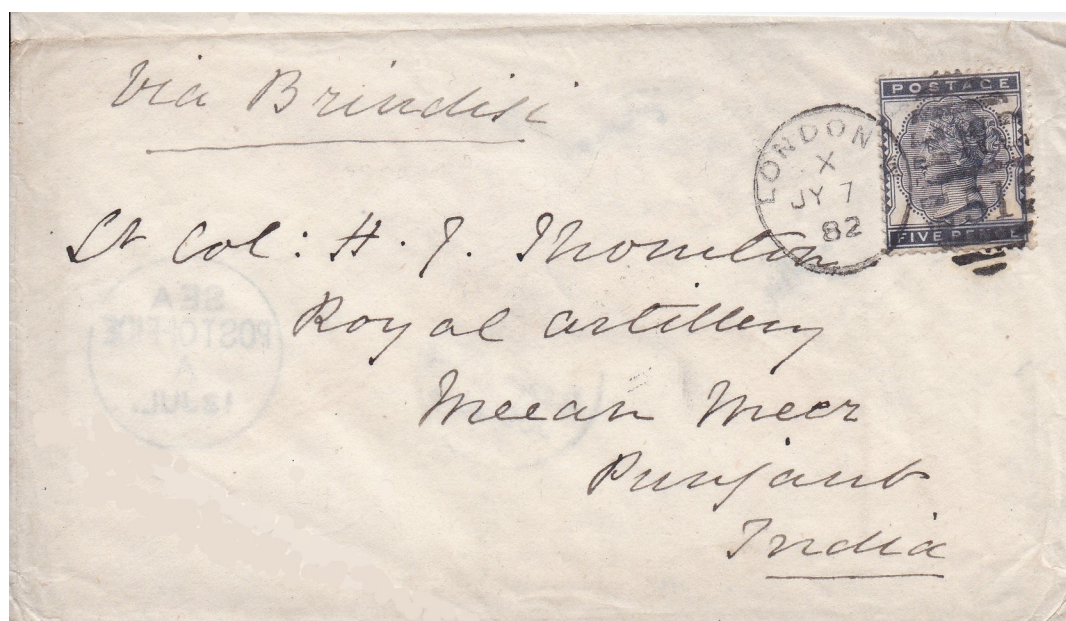 Via Brindisi
POSTAGE
FIVE PENCE
LONDON
X
JY 7
82
Lt Col: H. J. Thornton
Royal artillery
Meean Meer
Punjaub
India
SEA
POST OFFICE
A
12 JUL.